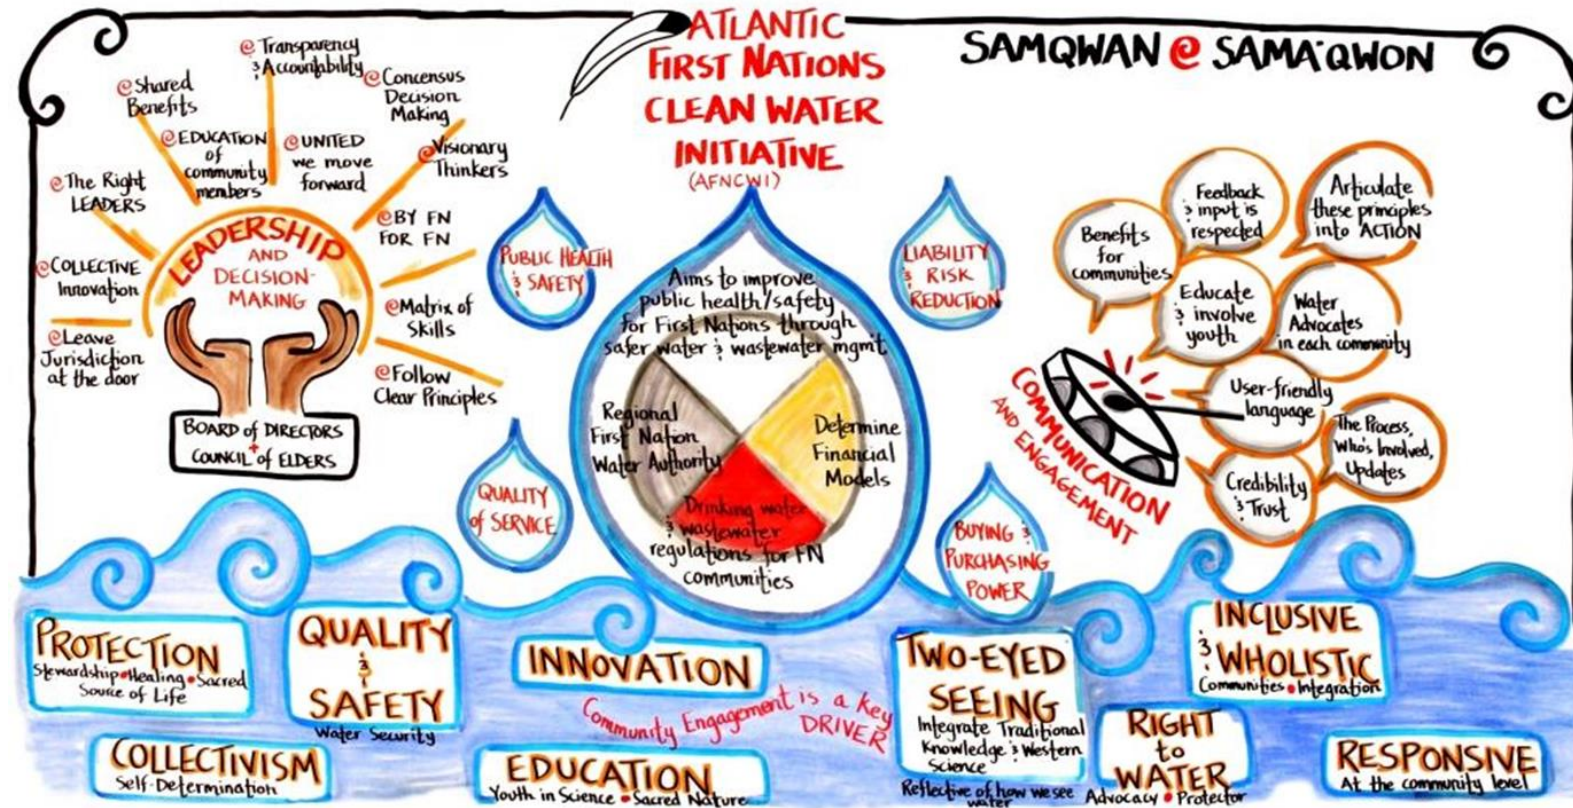 ATLANTIC
FIRST NATIONS
CLEAN WATER
INITIATIVE
(AFNCWI)
SAMQWAN @ SAMA'QWON
@ Transparency
& Accountability
@ Shared
Benefits
@ Concensus
Decision
Making
@ EDUCATION
of
community
members
@ UNITED
we move
forward
@ Visionary
Thinkers
@ The Right
LEADERS
@ BY FN
FOR FN
@ COLLECTIVE
Innovation
@ Matrix of
Skills
@ Leave
Jurisdiction
at the door
@ Follow
Clear Principles
LEADERSHIP
AND
DECISION-
MAKING
BOARD of DIRECTORS
+
COUNCIL of ELDERS
PUBLIC HEALTH
& SAFETY
QUALITY
of SERVICE
Aims to improve
public health/safety
for First Nations through
safer water & wastewater mgm't
Regional
First Nation
Water Authority
Determine
Financial
Models
Drinking water
& wastewater
regulations for FN
communities
LIABILITY
& RISK
REDUCTION
BUYING &
PURCHASING
POWER
COMMUNICATION
AND ENGAGEMENT
Benefits
for
communities
Feedback
& input is
respected
Articulate
these principles
into ACTION
Educate
& involve
youth
Water
Advocates
in each community
User-friendly
language
The Process,
Who's Involved,
Updates
Credibility
& Trust
PROTECTION
Stewardship • Healing • Sacred
Source of Life
QUALITY
&
SAFETY
Water Security
COLLECTIVISM
Self-Determination
INNOVATION
Community Engagement is a key
DRIVER
EDUCATION
Youth in Science • Sacred Nature
TWO-EYED
SEEING
Integrate Traditional
Knowledge & Western
Science
Reflective of how we see
water
RIGHT
to
WATER
Advocacy • Protector
INCLUSIVE
& WHOLISTIC
Communities • Integration
RESPONSIVE
At the community level